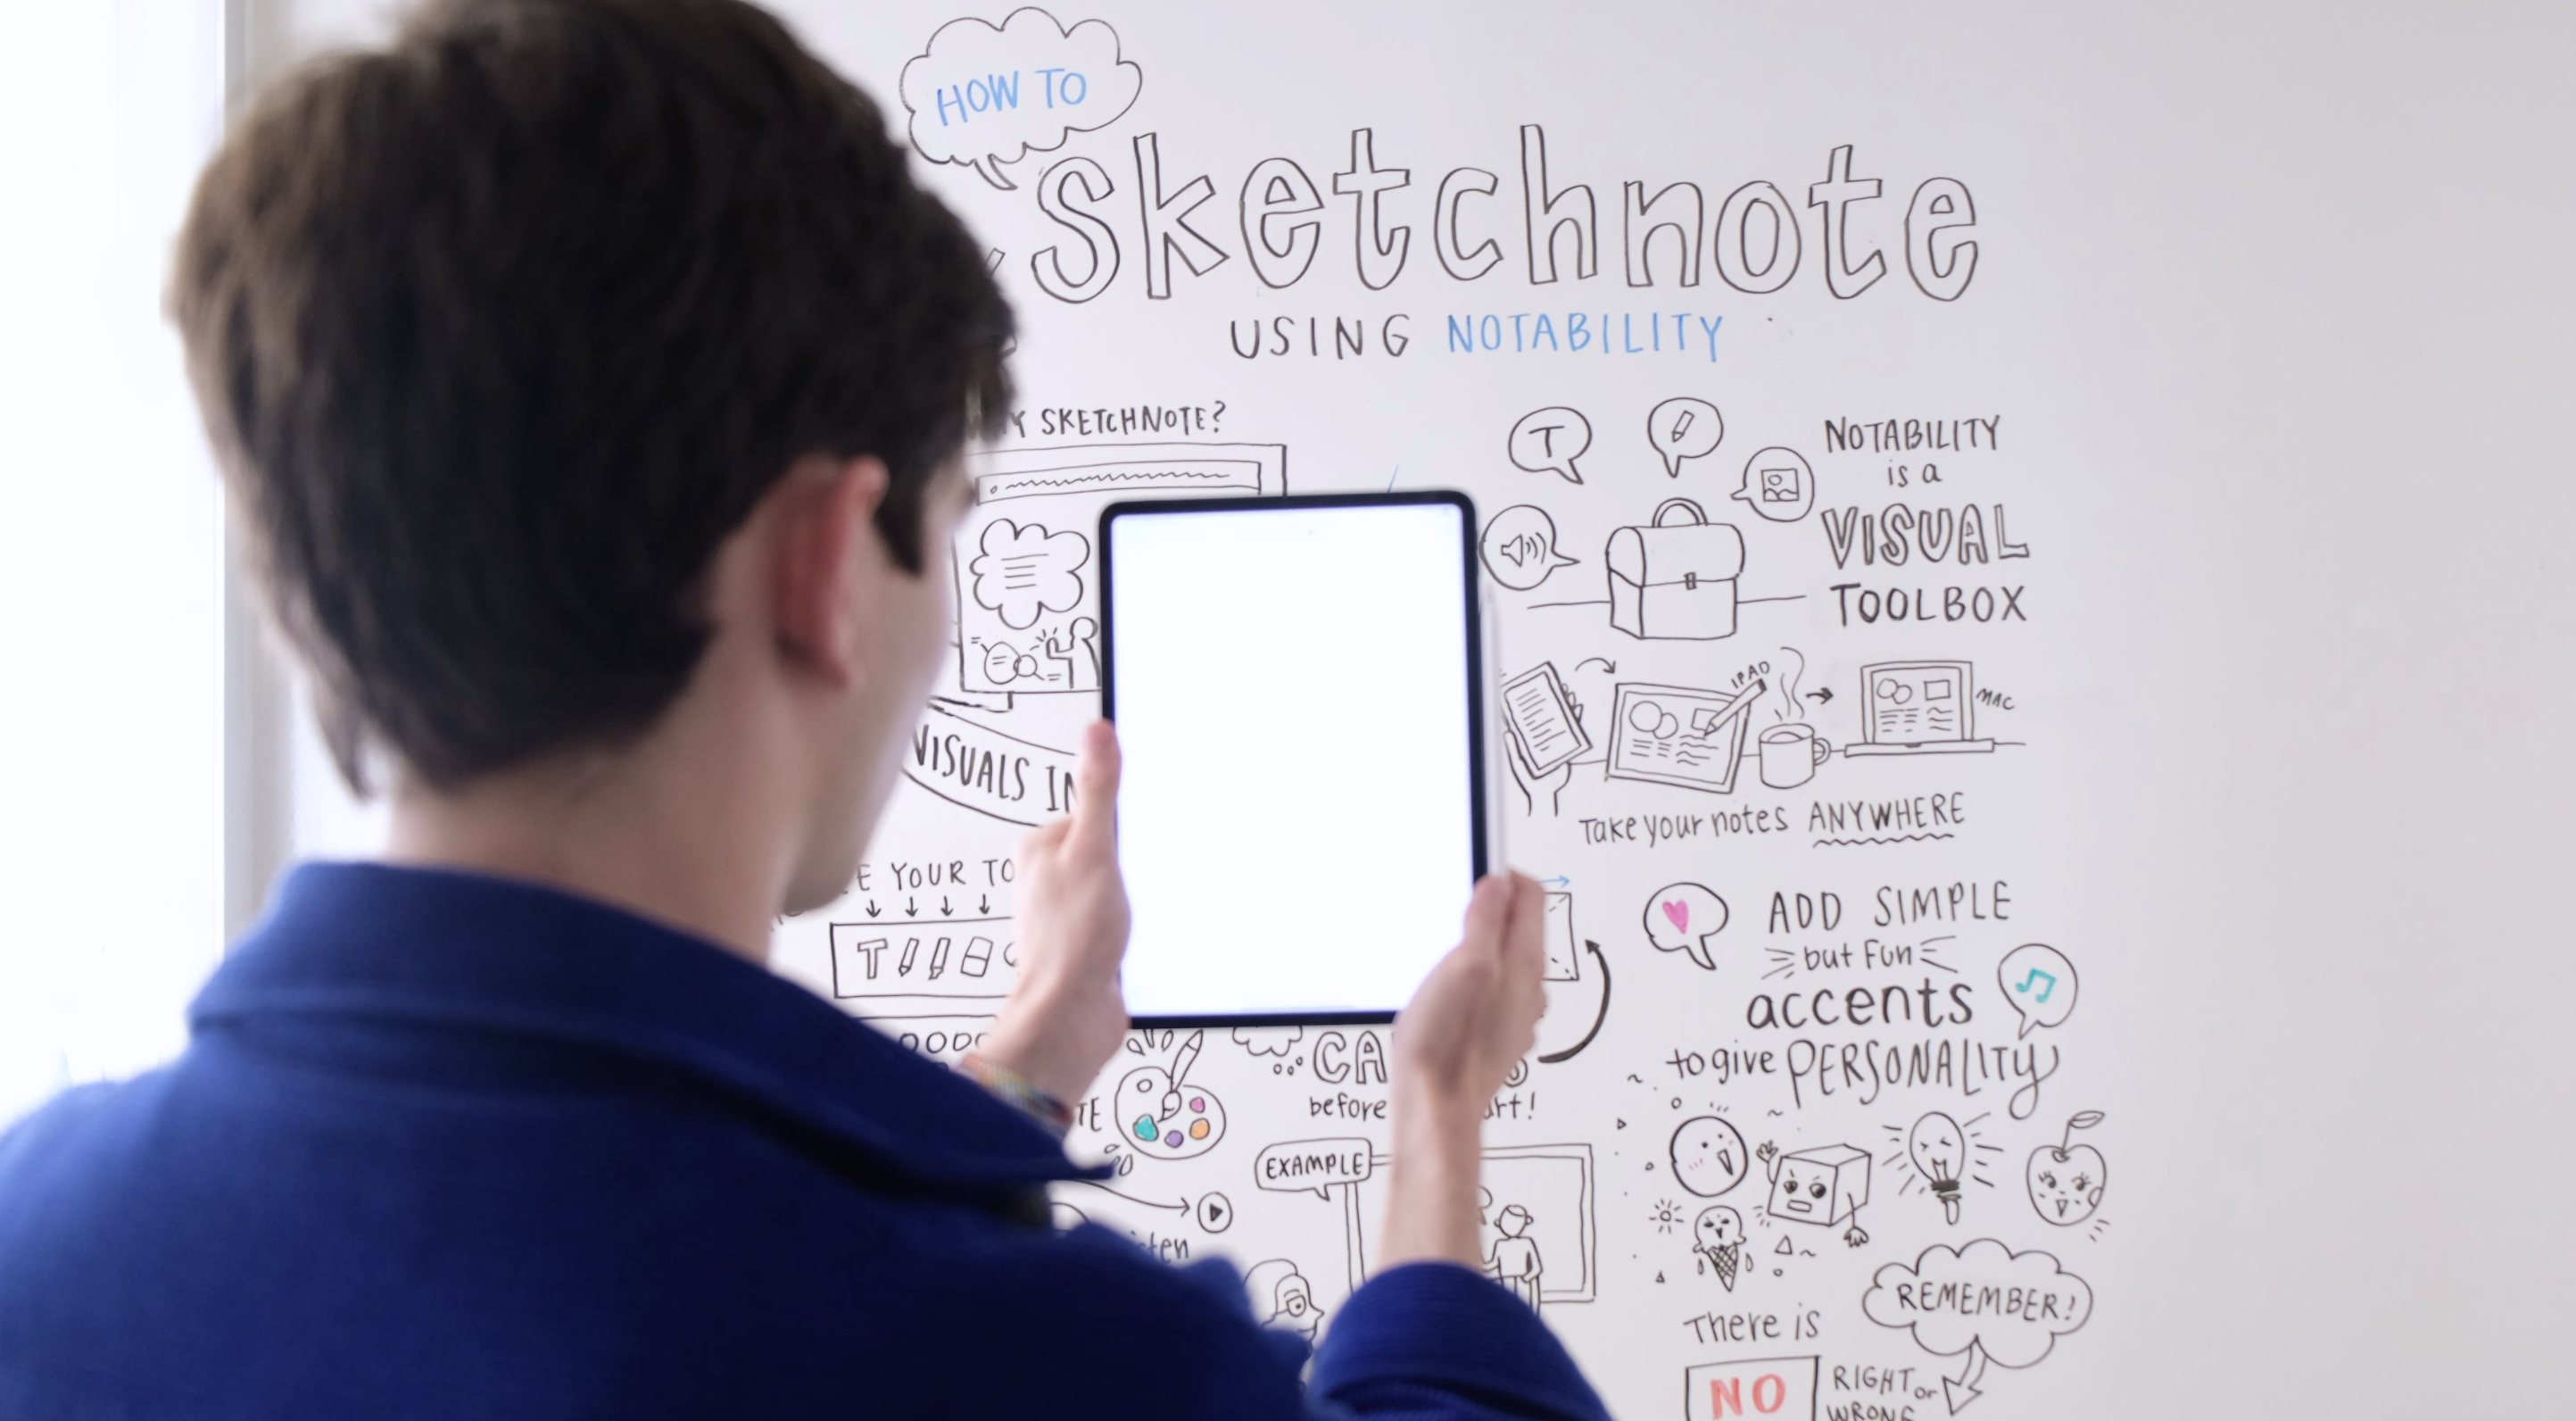 HOW TO
sketchnote
USING NOTABILITY
SKETCHNOTE?
VISUALS IN
YOUR
T
EXAMPLE
before
T
NOTABILITY
is a
VISUAL
TOOLBOX
IPAD
MAC
Take your notes ANYWHERE
ADD SIMPLE
but fun
accents
to give PERSONALITY
REMEMBER!
There is
NO
RIGHT or
WRONG